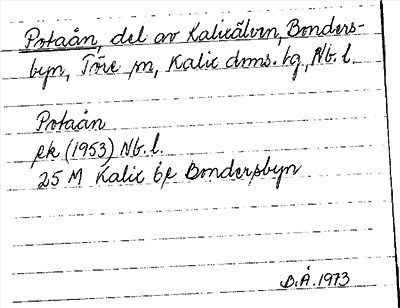 Potaån, del av Kalixälven, Bonders-
byn, Töre sn, Kalix dms. tg, Nb. l.
Potaån
ek (1953) Nb. l.
25 M Kalix bl Bondersbyn
D.Å. 1973